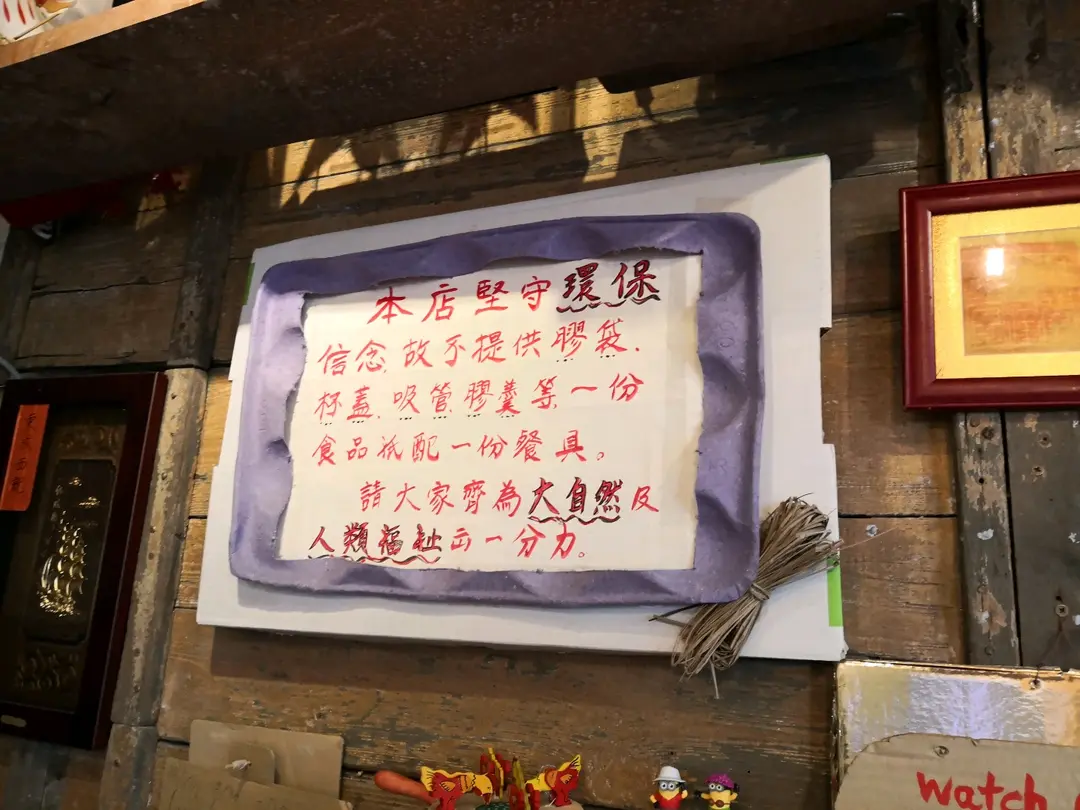 本店堅守環保
信念,故不提供膠袋,
杯蓋,吸管,膠羹等,一份
食品祇配一份餐具。
請大家齊為大自然及
人類福祉出一分力。
watch